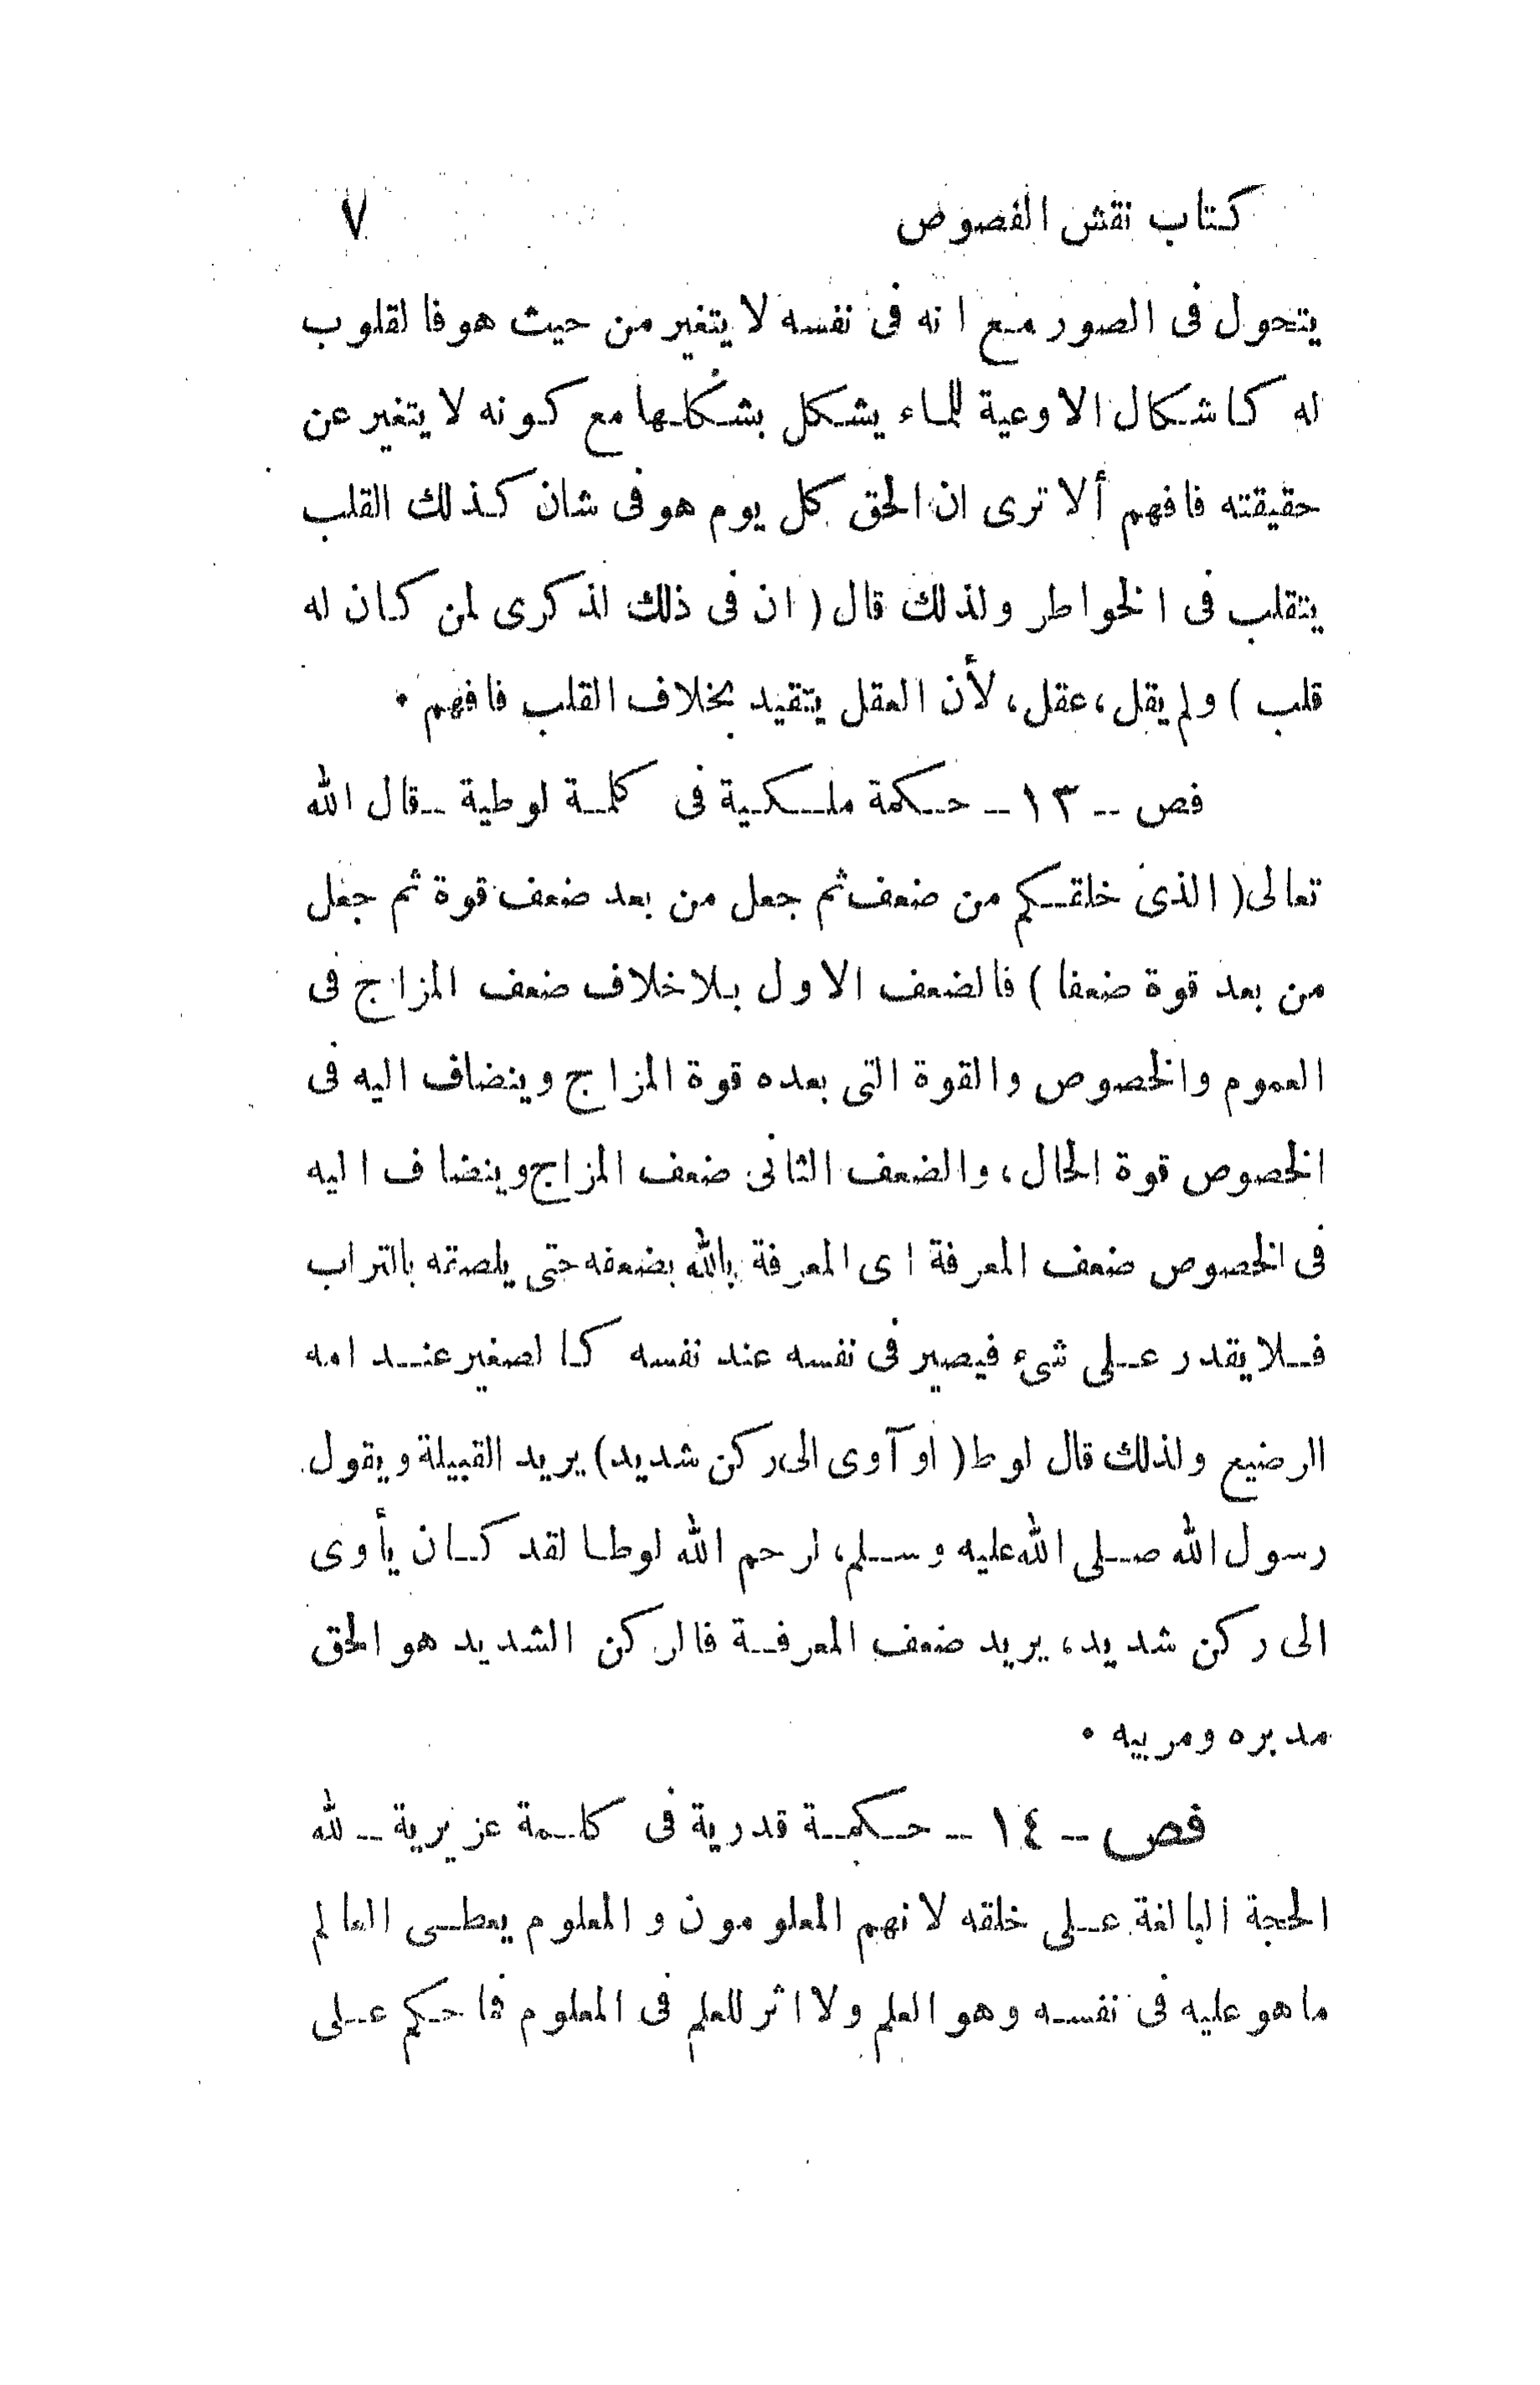 كتاب نقش الفصوص ٧
يتحول فى الصور مع انه فى نفسه لا يتغير من حيث هو فالقلوب
له كاشكال الاوعية للماء يشكل بشكلها مع كونه لا يتغير عن
حقيقته فافهم ألا ترى ان الحق كل يوم هو فى شان كذلك القلب
يتقلب فى الخواطر ولذلك قال ( ان فى ذلك لذكرى لمن كان له
قلب ) ولم يقل، عقل، لأن العقل يتقيد بخلاف القلب فافهم ٠
فص -- ١٣ -- حكمة ملكية فى كلمة لوطية -- قال الله
تعالى ( الذى خلقكم من ضعف ثم جعل من بعد ضعف قوة ثم جعل
من بعد قوة ضعفا ) فالضعف الاول بلا خلاف ضعف المزاج فى
العموم والخصوص والقوة التى بعده قوة المزاج وينضاف اليه فى
الخصوص قوة الحال، والضعف الثانى ضعف المزاج وينضاف اليه
فى الخصوص ضعف المعرفة اى المعرفة بالله بضعفه حتى يلصقه بالتراب
فلا يقدر على شىء فيصير فى نفسه عند نفسه كالصغير عند امه
الرضيع ولذلك قال لوط ( او آوى الى ركن شديد ) يريد القبيلة ويقول
رسول الله صلى الله عليه وسلم، لرحم الله لوطا لقد كان يأوى
الى ركن شديد، يريد ضعف المعرفة فالركن الشديد هو الحق
مدبره ومربيه ٠
فص -- ١٤ -- حكمة قدرية فى كلمة عزيرية -- لله
الحجة البالغة على خلقه لانهم المعلومون والمعلوم يعطى العالم
ما هو عليه فى نفسه وهو العلم ولا اثر للعلم فى المعلوم فما حكم على